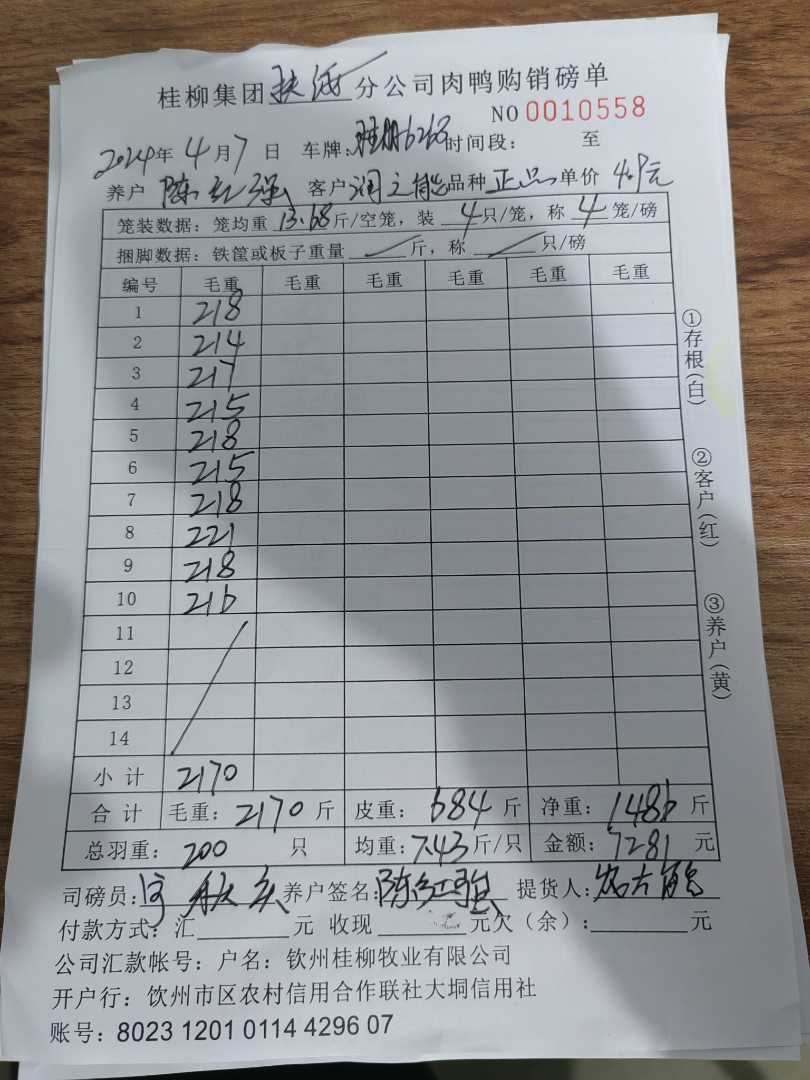 桂柳集团扶绥分公司肉鸭购销磅单
NO 0010558
2024年 4月 7日 车牌：桂 6268 时间段： 至
养户 陈红强 客户 润之 品种 正品 单价 4.9元
笼装数据：笼均重 13.68 斤/空笼，装 4 只/笼，称 4 笼/磅
捆脚数据：铁筐或板子重量 斤，称 只/磅
编号 毛重 毛重 毛重 毛重 毛重 毛重
1 218
2 214
3 217
4 215
5 218
6 215
7 218
8 221
9 218
10 216
11
12
13
14
小计 2170
合计 毛重：2170 斤 皮重：684 斤 净重：1486 斤
总羽重：200 只 均重：7.43 斤/只 金额：7281 元
司磅员： 养户签名：陈红强 提货人：
付款方式：汇 元 收现 元欠（余）： 元
公司汇款帐号：户名：钦州桂柳牧业有限公司
开户行：钦州市区农村信用合作联社大垌信用社
账号：8023 1201 0114 4296 07
①存根（白）
②客户（红）
③养户（黄）